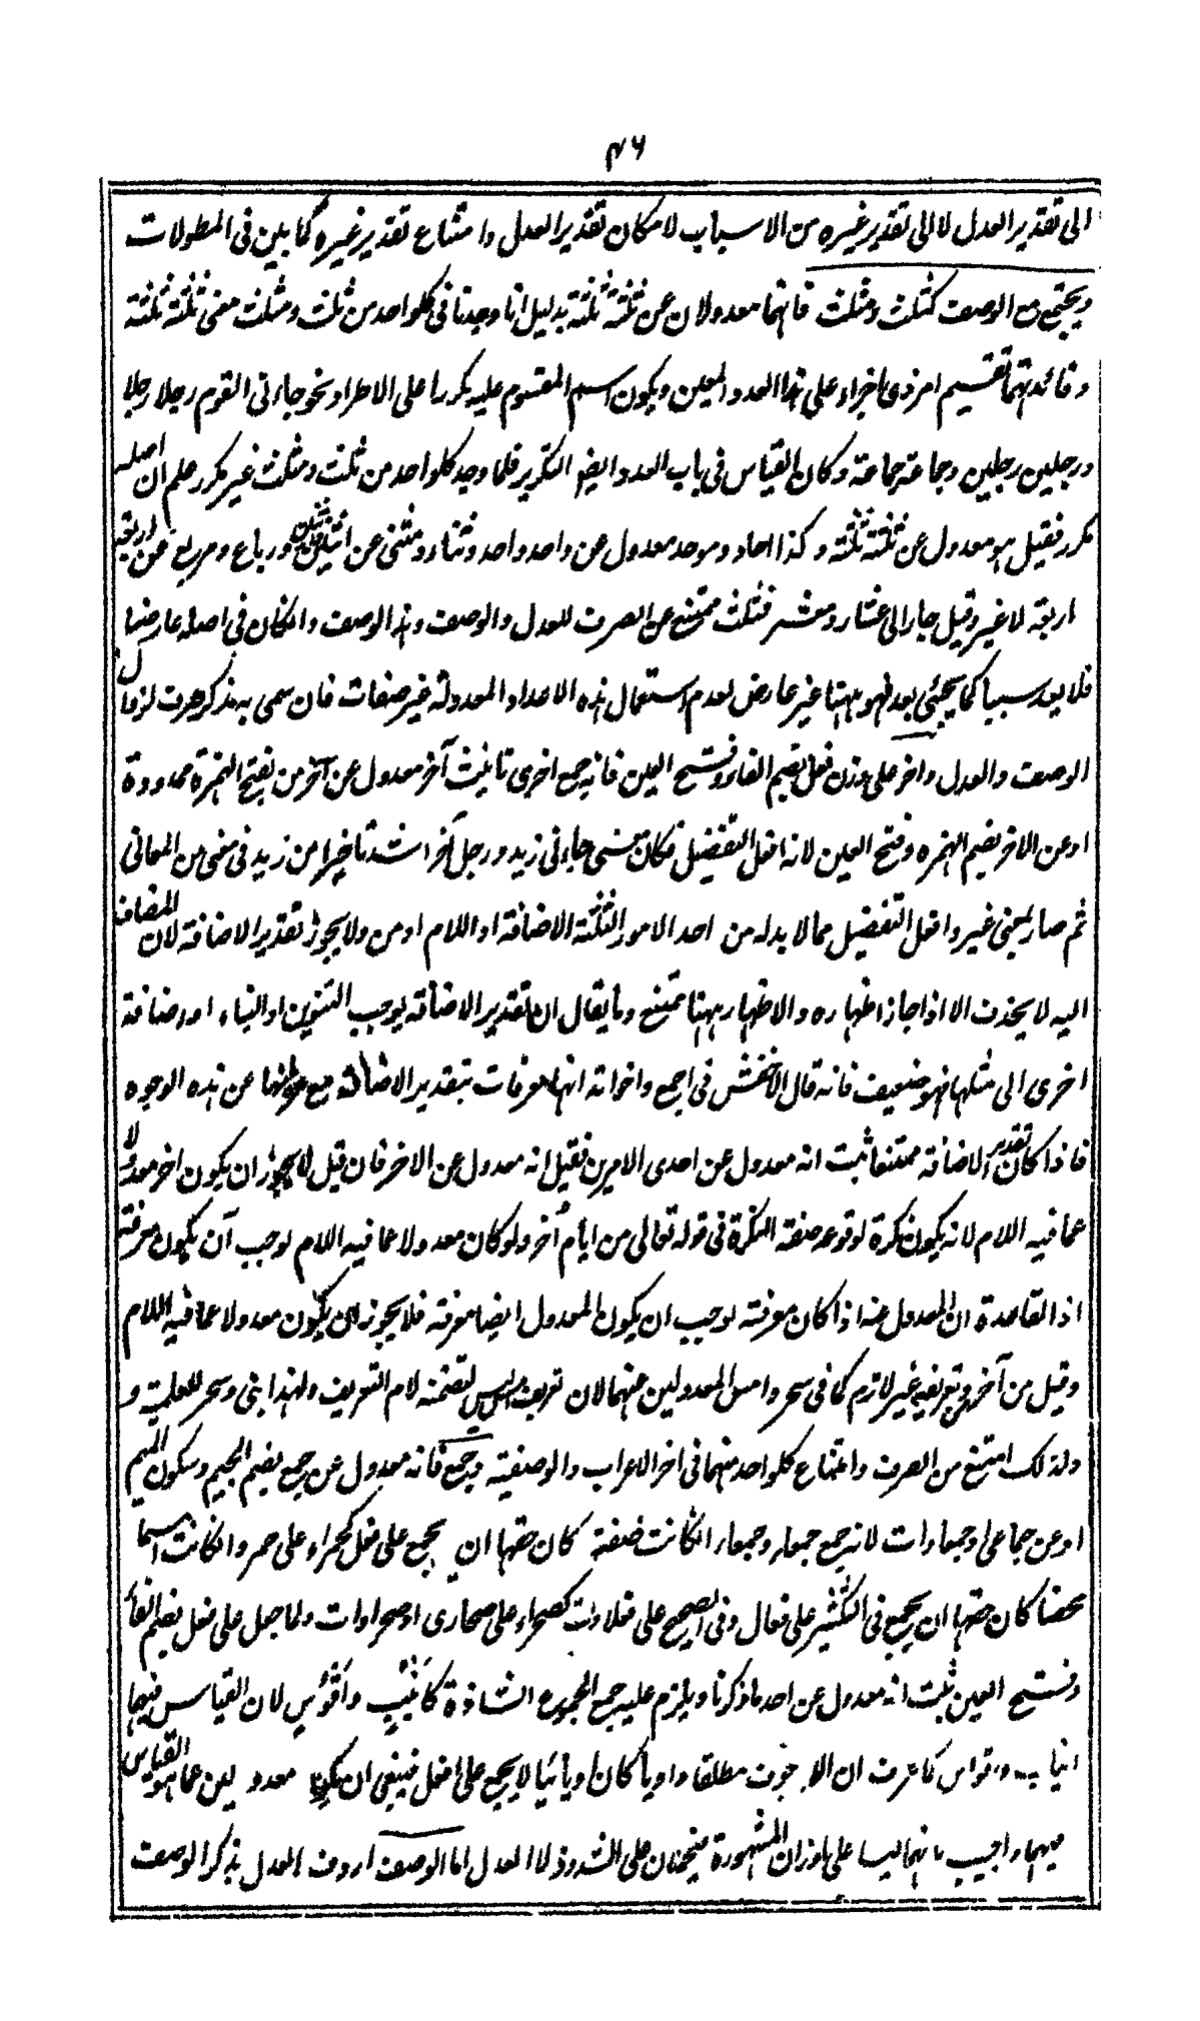 ٤٦
الى تقدير العدل لا الى تقدير غيره من الاسباب لامكان تقدير العدل وامتناع تقدير غيره كما بين فى المطولات
ويجتمع مع الوصف كثلث ومثلث فانهما معدولان عن ثلثة ثلثة بدليل انا وجدنا فى كلواحد من ثلث ومثلث معنى ثلثة ثلثة
وفائدتهما تقسيم امر ذى اجزاء على هذا العدد المعين ويكون اسم المقسوم عليه مكررا على الاطراد نحو جاءنى القوم رجلا رجلا
ورجلين رجلين وجماعة جماعة وكان القياس فى باب العدد ايضا التكرير فلما وجد كلواحد من ثلث ومثلث غير مكرر علم ان اصله
مكرر فقيل هو معدول عن ثلثة ثلثة وكذا احاد وموحد معدول عن واحد واحد وثناء ومثنى عن اثنين اثنين ورباع ومربع عن اربعة
اربعة لا غير وقيل جاء الى عشار ومعشر فثلث ممتنع عن الصرف للعدل والوصف وهذا الوصف وان كان فى اصله عارضيا
فلا يعد سببا كما يجئى بعد فهو ههنا غير عارض لعدم استعمال هذه الاعداد المعدولة غير صفات فان سمى به مذكر صرف لزوال
الوصف والعدل واخر على وزن فعل بضم الفاء وفتح العين فانه جمع اخرى تانيث آخر معدول عن آخر من بفتح الهمزة ممدودة
او عن الاخر بضم الهمزه وفتح العين لانه افعل التفضيل فكان معنى جاءنى زيد ورجل آخر اشد تاخيرا من زيد فى معنى من المعانى
ثم صار بمعنى غير وافعل التفضيل مما لا بد له من احد الامور الثلثة الاضافة او اللام او من ولا يجوز تقدير الاضافة لان المضاف
اليه لا يحذف الا اذا جاز اظهاره والاظهار ههنا ممتنع وما يقال ان تقدير الاضافة يوجب التنوين او البناء او اضافة
اخرى الى مثلها فهو ضعيف فانه قال الاخفش فى اجمع واخواته انها معرفات بتقدير الاضافة مع خلوها عن هذه الوجوه
فاذا كان تقدير الاضافة ممتنعا ثبت انه معدول عن احدى الامرين فقيل انه معدول عن الاخر فان قيل لا يجوز ان يكون اخر معدولا
عما فيه اللام لانه يكون نكرة لوقوعه صفة النكرة فى قوله تعالى من ايام أخر ولو كان معدولا عما فيه اللام لوجب ان يكون معرفة
اذ القاعدة ان المعدول عنه اذا كان معرفة لوجب ان يكون المعدول ايضا معرفة فلا يجوز ان يكون معدولا عما فيه اللام
وقيل من آخر وتعريفه غير لازم كما فى سحر وامس المعدولين عنهما لان تعريف امس لتضمنه لام التعريف ولهذا بنى وسحر للعلمية و
ولذلك امتنع من الصرف وامتناع كلواحد منهما فى اخر الاعراب والوصفية وجمع فانه معدول عن جمع بضم الجيم وسكون الميم
او عن جماعى او جمعاوات لانه جمع جمعاء وجمعاء ان كانت صفة كان حقها ان يجمع على فعل كحمراء على حمر وان كانت اسما
محضا كان حقها ان يجمع فى التكثير على فعال وفى الصحيح على فعلاوات كصحراء على صحارى او صحراوات ولما جعل على فعل بضم الفاء
وفتح العين ثبت انه معدول عن احد ما ذكرنا ويلزم عليه جمع الجموع الشاذة كأنيب وأقوس لان القياس فيها
انياب واقواس كما عرف ان الاجوف مطلقا واويا كان او يائيا لا يجمع على افعل فينبغى ان يكونا معدولين عما هو القياس
فيهما واجيب بانهما ليسا على اوزان المشهورة فيحملان على الشذوذ لا العدل اما الوصف اردف العدل بذكر الوصف